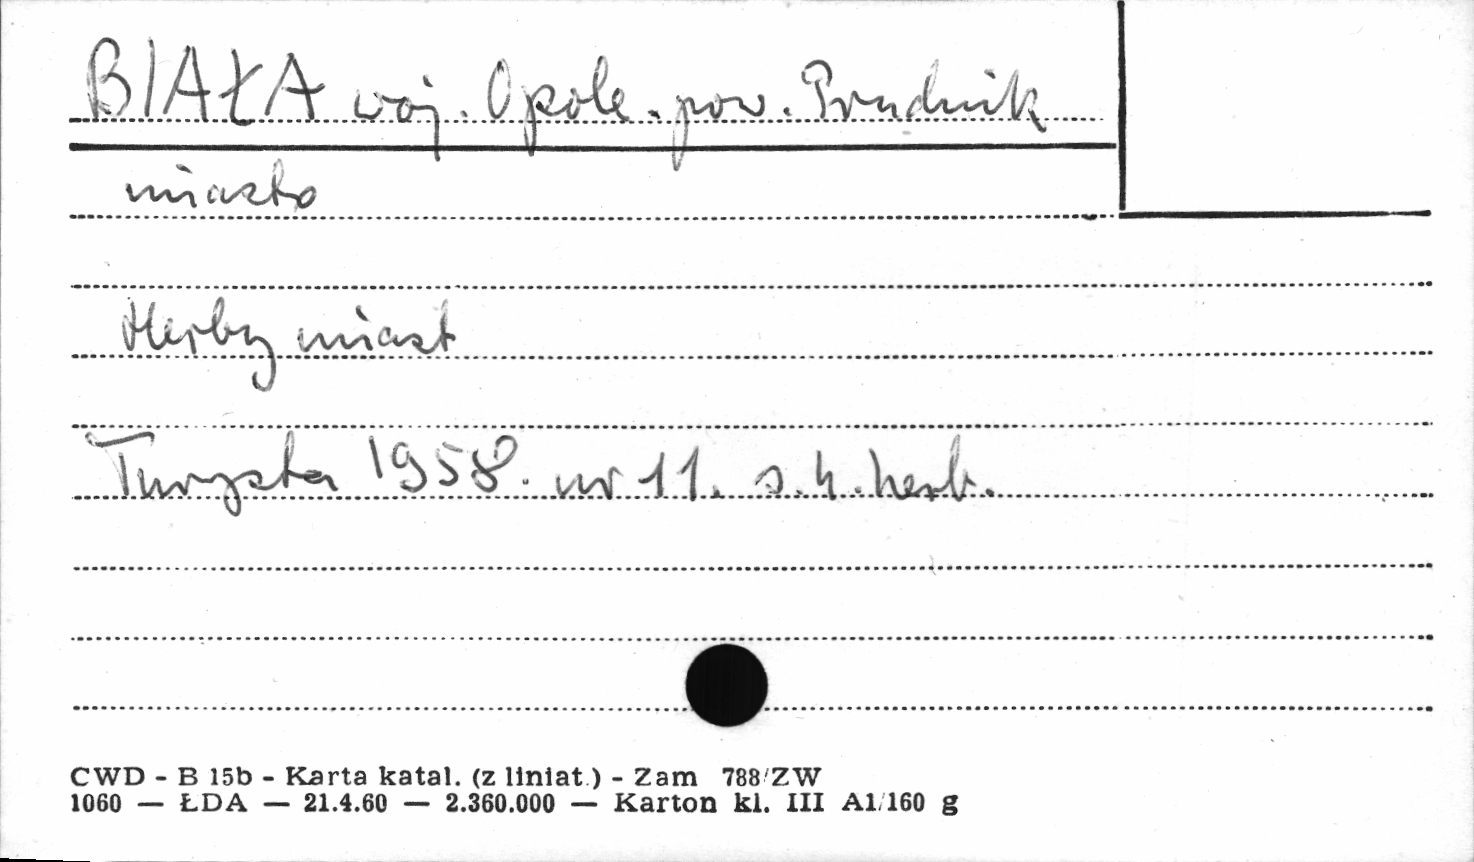 BIAŁA woj. Opole. pow. Prudnik
miasto
Herby miast
Turysta 1958. nr 11. s. 4. herb.
CWD - B 15b - Karta katal. (z liniat.) - Zam 788/ZW
1060 — ŁDA — 21.4.60 — 2.360.000 — Karton kl. III A1/160 g